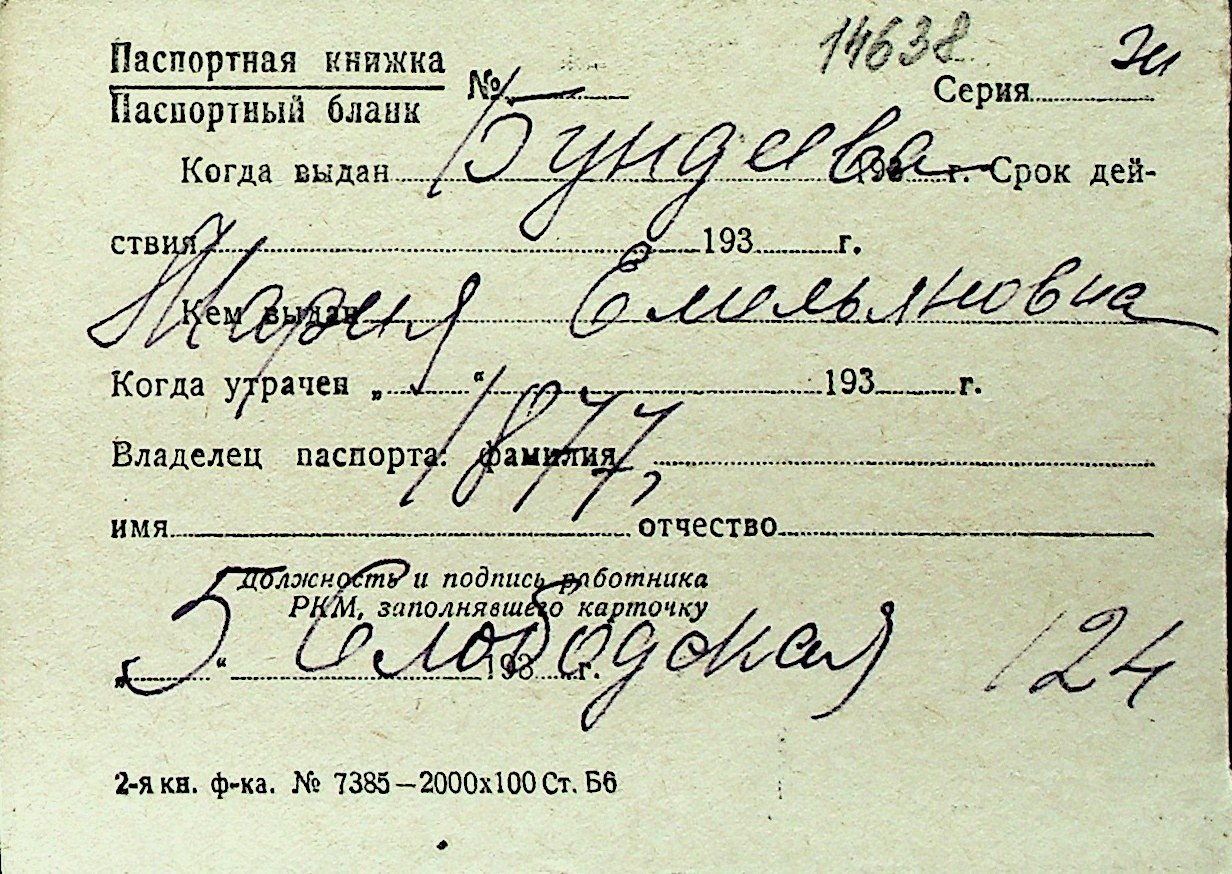 14638 Эи
Паспортная книжка
Паспортный бланк
№ Серия
Бундеева
Когда выдан 193 г. Срок дей-
ствия 193 г.
Мария Емельяновна
Кем выдан
Когда утрачен „ “ 193 г.
1877,
Владелец паспорта: фамилия
имя отчество
Должность и подпись работника
РКМ, заполнявшего карточку
5 Слободская 124
„ “ 193 г.
2-я кн. ф-ка. № 7385—2000х100 Ст. Б6